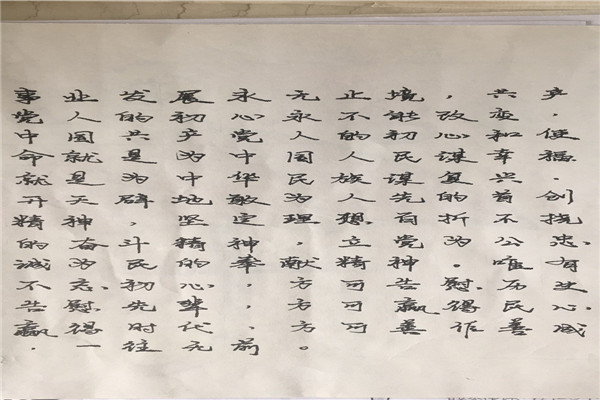 事业发展永无止境，共产
党人的初心永不能改变.
中国共产党人的初心和使
命就是为中国人民谋幸福.
就是为中华民族谋复兴.
开天辟地敢为人先的首创
精神，坚定理想，百折不挠
的奋斗精神，立党为公忠
诚为民的奉献精神。唯有
不忘初心，方可告慰历史、
告慰先辈，方可赢得民心.
赢得时代，方可善作善成
.一往无前。